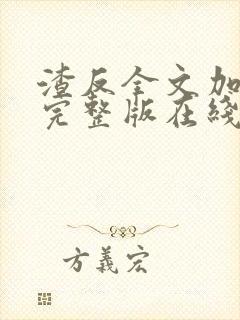 渣反全文加
完整版在綫
方義宏